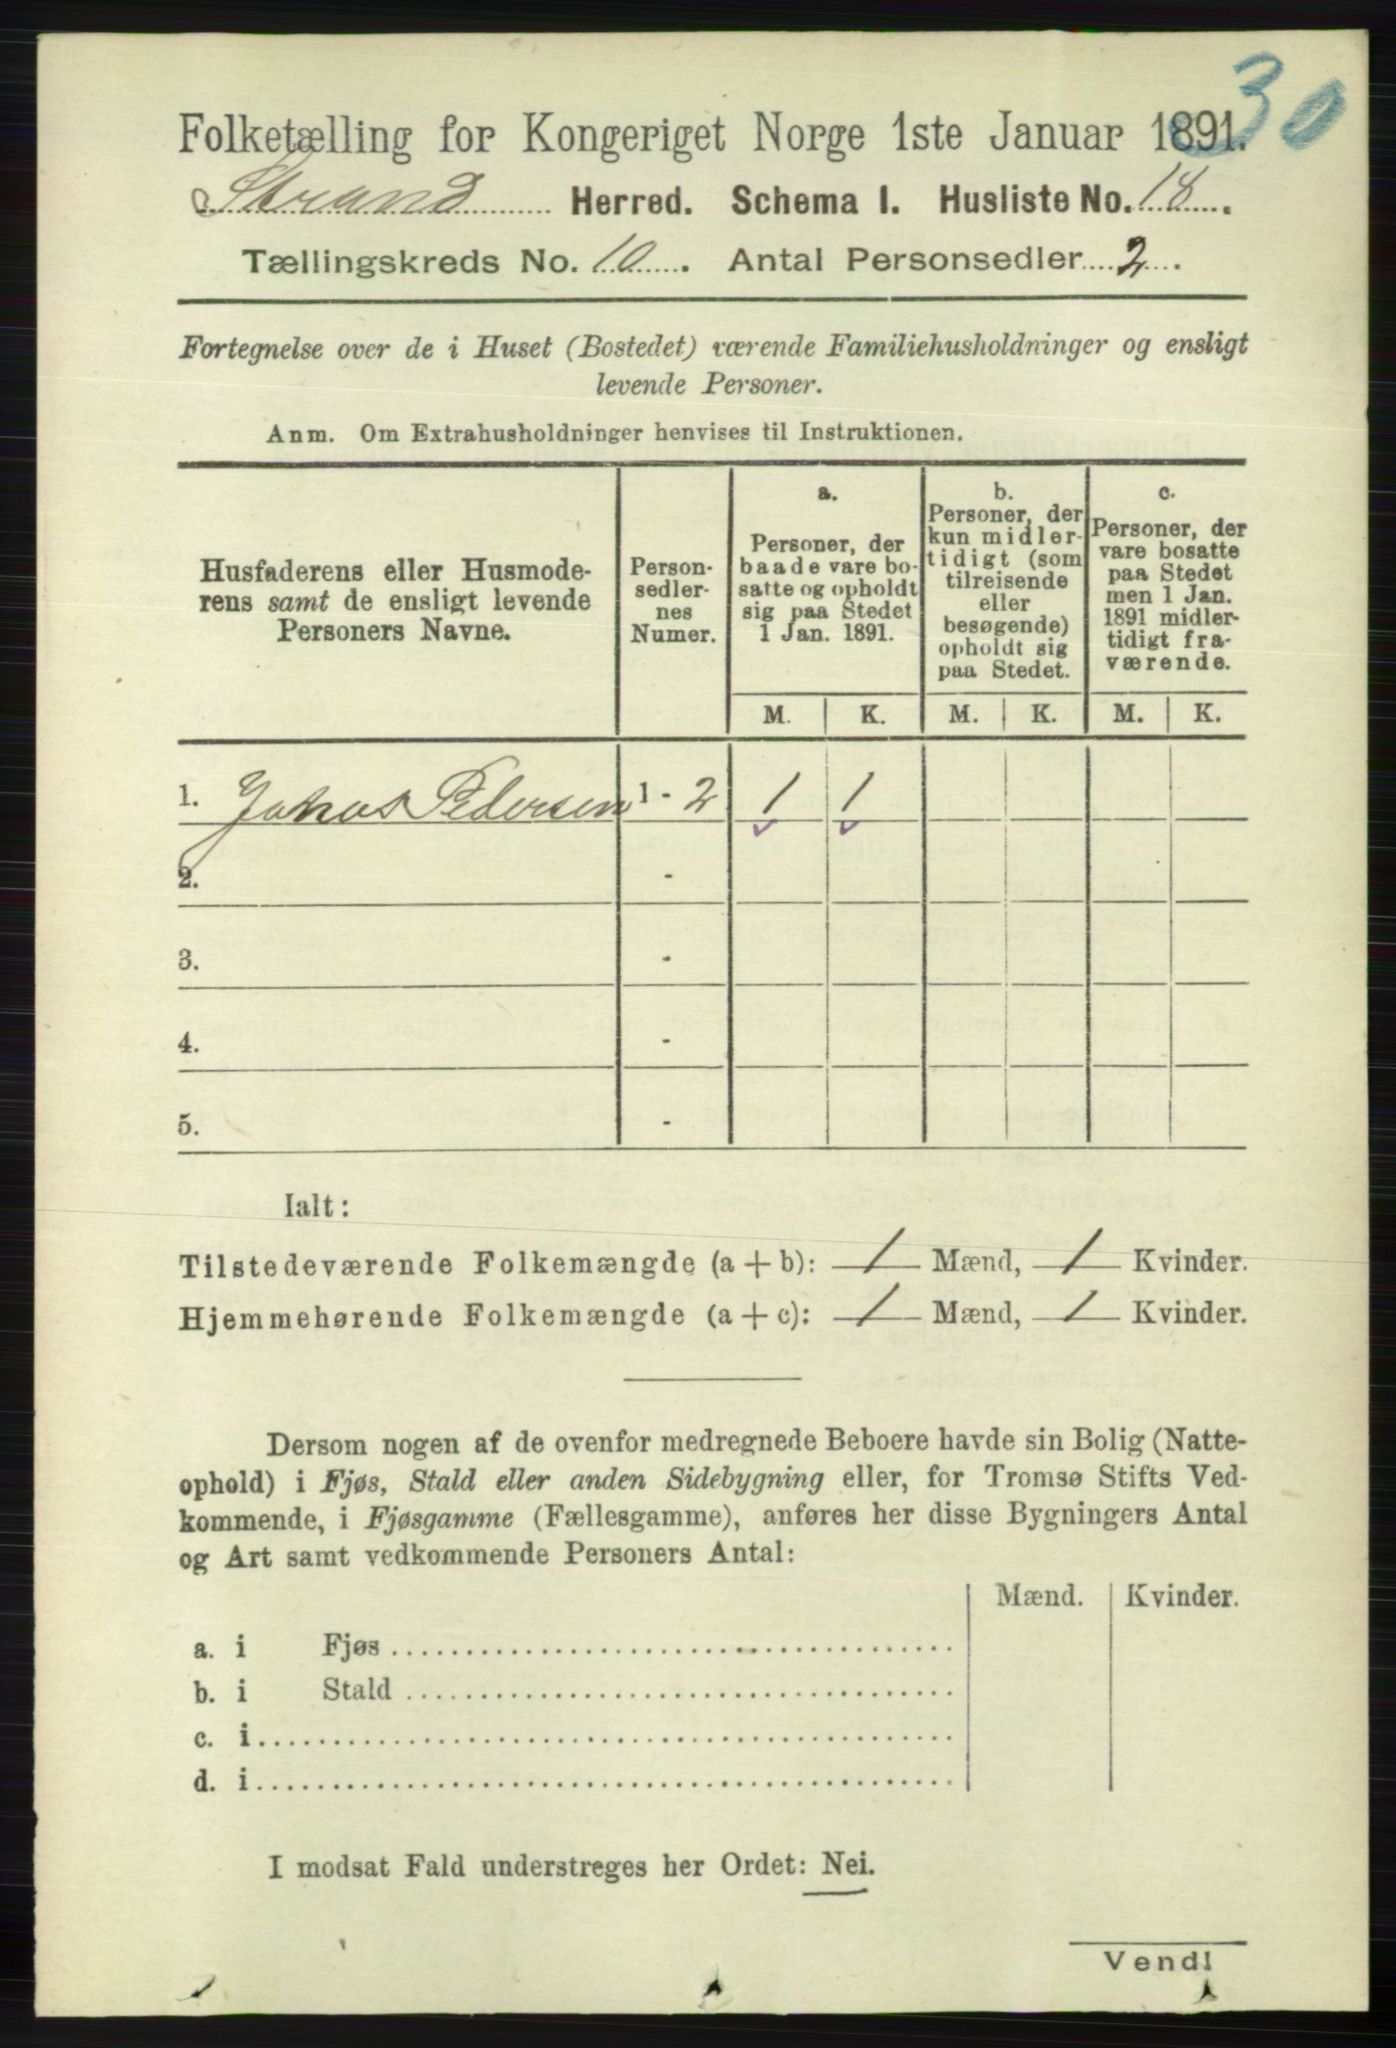 30
Folketælling for Kongeriget Norge 1ste Januar 1891.
Strand Herred. Schema I. Husliste No. 18.
Tællingskreds No. 10. Antal Personsedler 2.
Fortegnelse over de i Huset (Bostedet) værende Familiehusholdninger og ensligt
levende Personer.
Anm. Om Extrahusholdninger henvises til Instruktionen.
Husfaderens eller Husmode-
rens samt de ensligt levende
Personers Navne.
Person-
sedler-
nes
Numer.
a.
Personer, der
baade vare bo-
satte og opholdt
sig paa Stedet
1 Jan. 1891.
b.
Personer, der
kun midler-
tidigt (som
tilreisende
eller
besøgende)
opholdt sig
paa Stedet.
c.
Personer, der
vare bosatte
paa Stedet
men 1 Jan.
1891 midler-
tidigt fra-
værende.
M. K. M. K. M. K.
1. Pedersen 1 - 2 1 1
2. -
3. -
4. -
5. -
Ialt:
Tilstedeværende Folkemængde (a + b): 1 Mænd, 1 Kvinder.
Hjemmehørende Folkemængde (a + c): 1 Mænd, 1 Kvinder.
Dersom nogen af de ovenfor medregnede Beboere havde sin Bolig (Natte-
ophold) i Fjøs, Stald eller anden Sidebygning eller, for Tromsø Stifts Ved-
kommende, i Fjøsgamme (Fællesgamme), anføres her disse Bygningers Antal
og Art samt vedkommende Personers Antal:
Mænd. Kvinder.
a. i Fjøs
b. i Stald
c. i
d. i
I modsat Fald understreges her Ordet: Nei.
Vend!